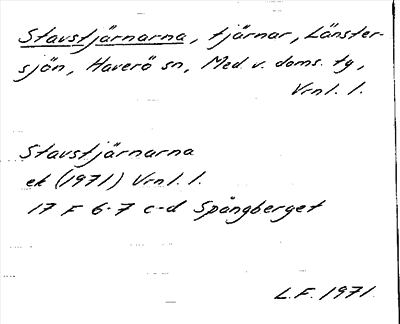 Stavstjärnarna, tjärnar, Länster-
sjön, Haverö sn, Med. v. doms. tg,
Vrnl. l.
Stavstjärnarna
ek (1971) Vrnl. l.
17 F 6-7 c-d Spångberget
L.F. 1971.